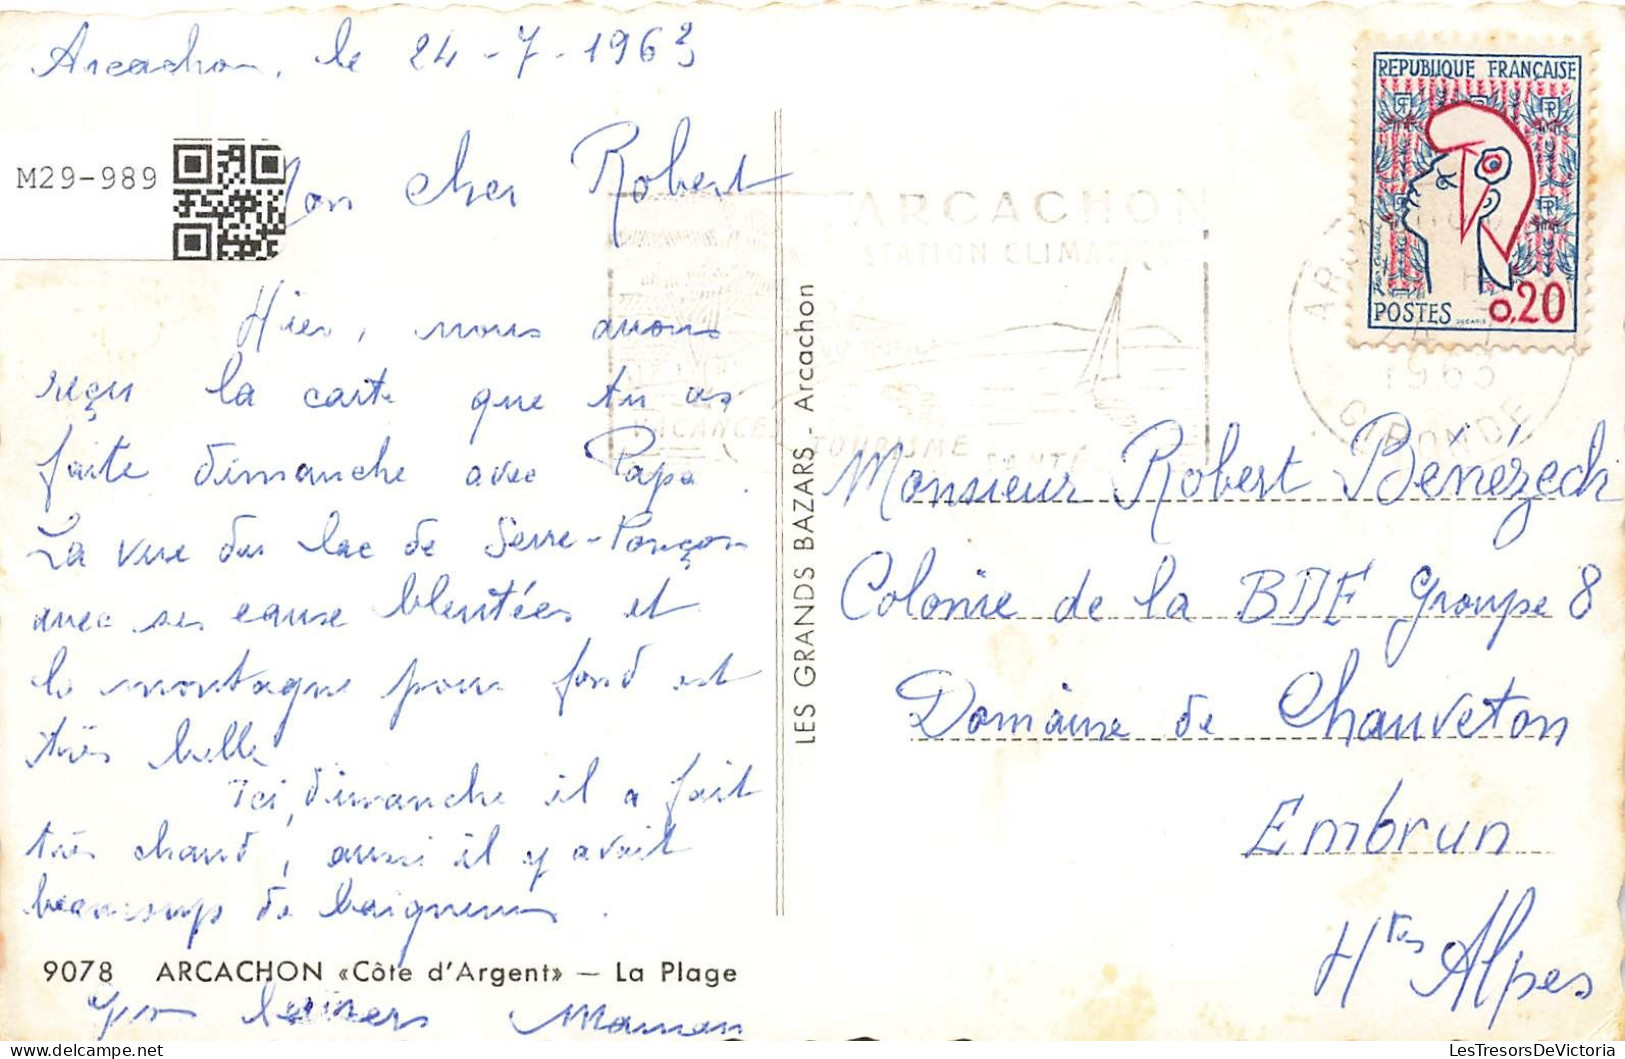 Arcachon, le 24-7-1963
M29-989
Mon cher Robert
Hier, nous avons
reçu la carte que tu as
faite dimanche avec Papa.
La vue du lac de Serre-Ponçon
avec ses eaux bleutées et
la montagne pour fond est
très belle
Ici, dimanche il a fait
très chaud, aussi il y avait
beaucoup de baigneurs.
9078 ARCACHON «Côte d'Argent» — La Plage
baisers Maman
LES GRANDS BAZARS - Arcachon
ARCACHON
STATION CLIMATIQUE
VACANCES TOURISME SANTÉ
REPUBLIQUE FRANÇAISE
POSTES 0,20
1963
GIRONDE
Monsieur Robert Bénézech
Colonie de la BDF Groupe 8
Domaine de Chauveton
Embrun
Htes Alpes
LesTresorsDeVictoria